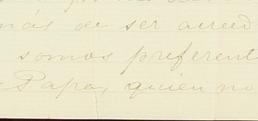 más de ser acreed
somos preferent
Papa, quien no